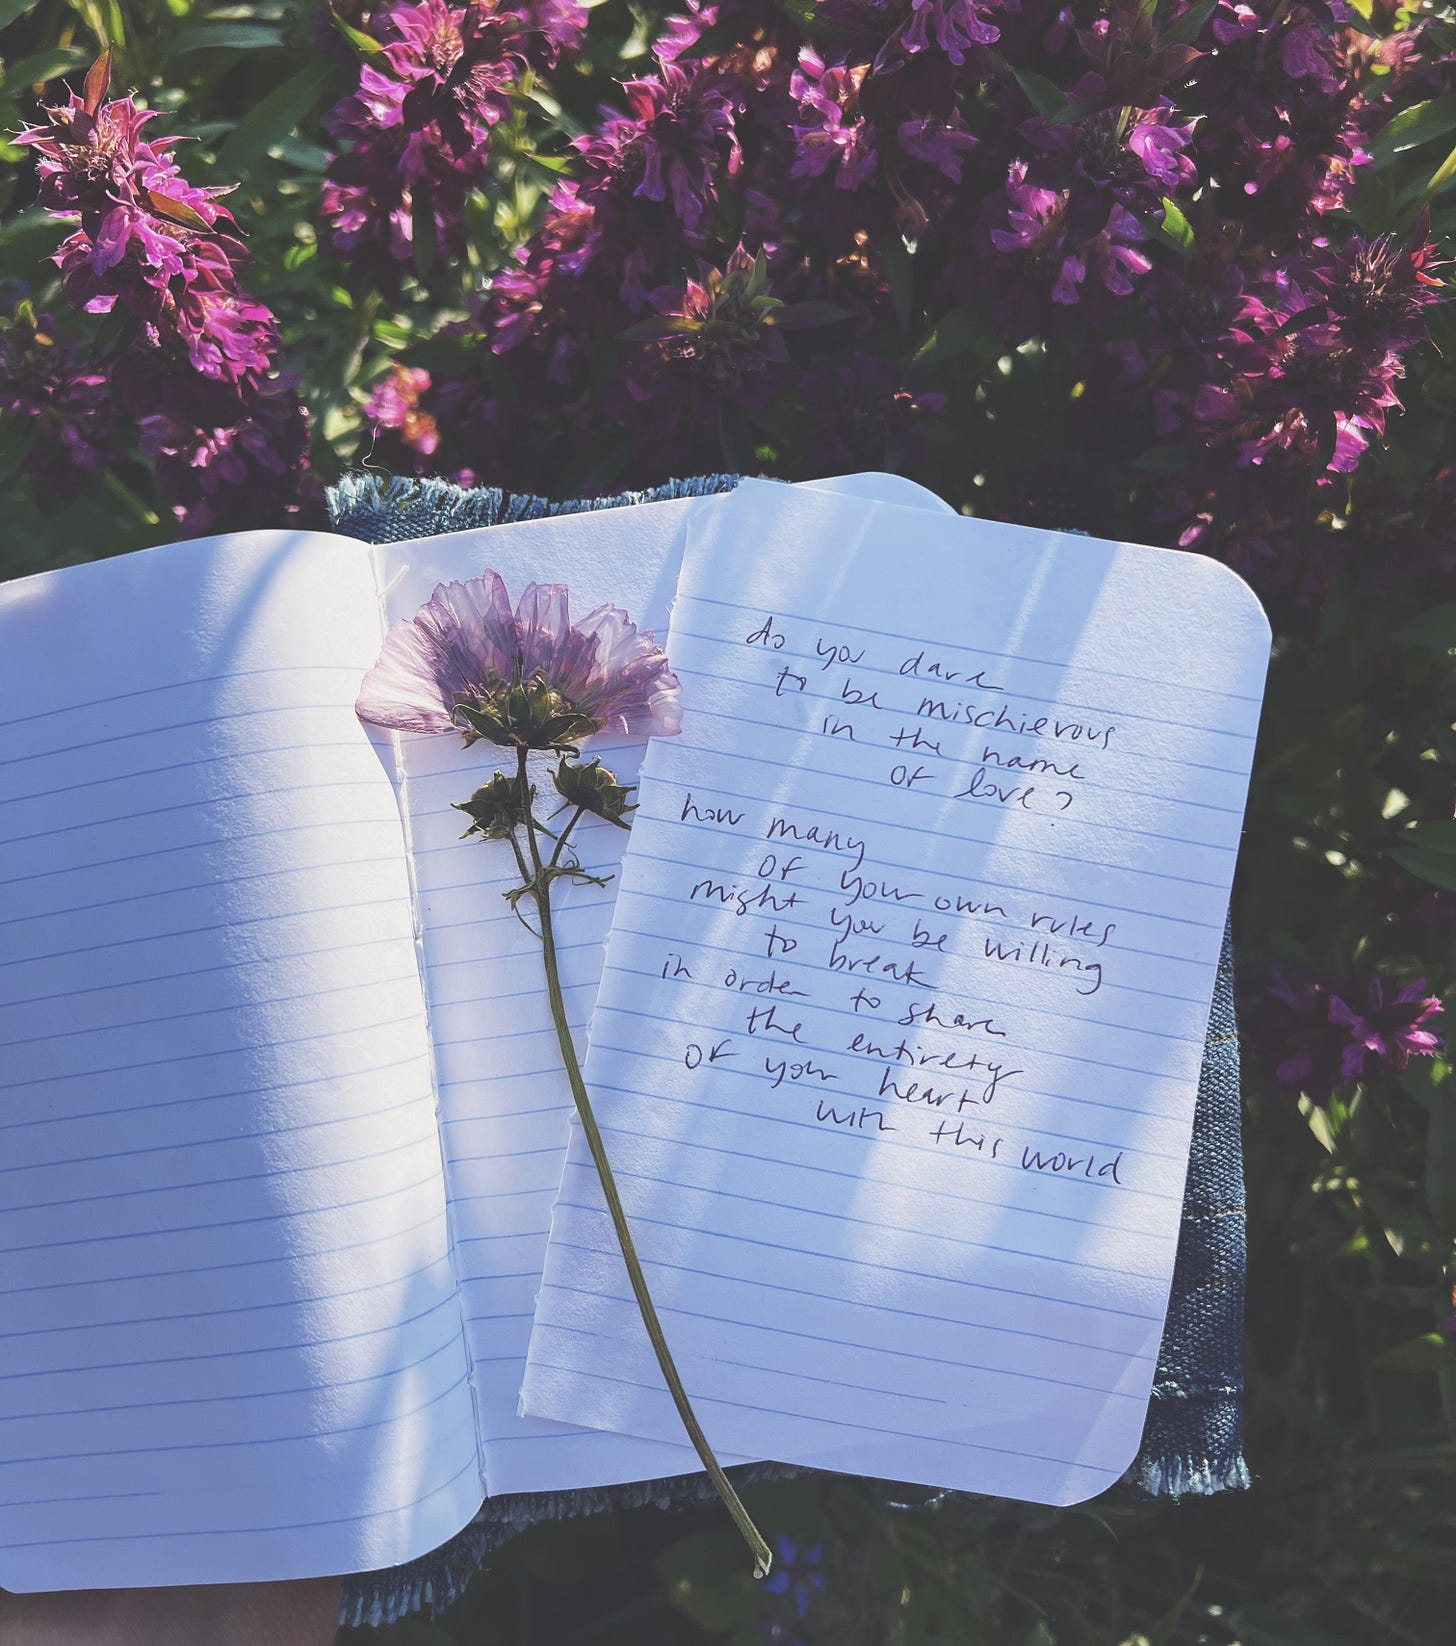 do you dare
to be mischievous
in the name
of love?
how many
of your own rules
might you be willing
to break
in order to share
the entirety
of your heart
with this world